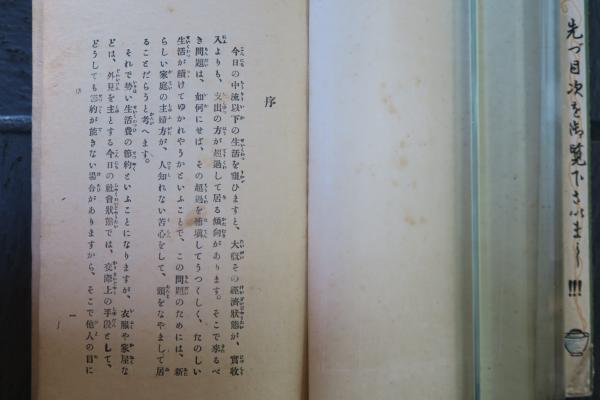 先づ目次を御覧下さいませ!!!
序
今日の中流以下の生活を窺ひますと、大槪その經濟狀態が、實收
入よりも、支出の方が超過して居る傾向があります。そこで來るべ
き問題は、如何にせば、その超過を補塡してうつくしく、たのしい
生活が續けてゆかれやうかといふことで、この問題のためには、新
らしい家庭の主婦方が、人知れない苦心をして、頭をなやまして居
ることだらうと考へます。
それで勢い生活費の節約といふことになりますが、衣服や家屋な
どは、外見を主とする今日の社會狀態では、交際上の手段として、
どうしても節約が能きない場合がありますから、そこで他人の目に
序
一